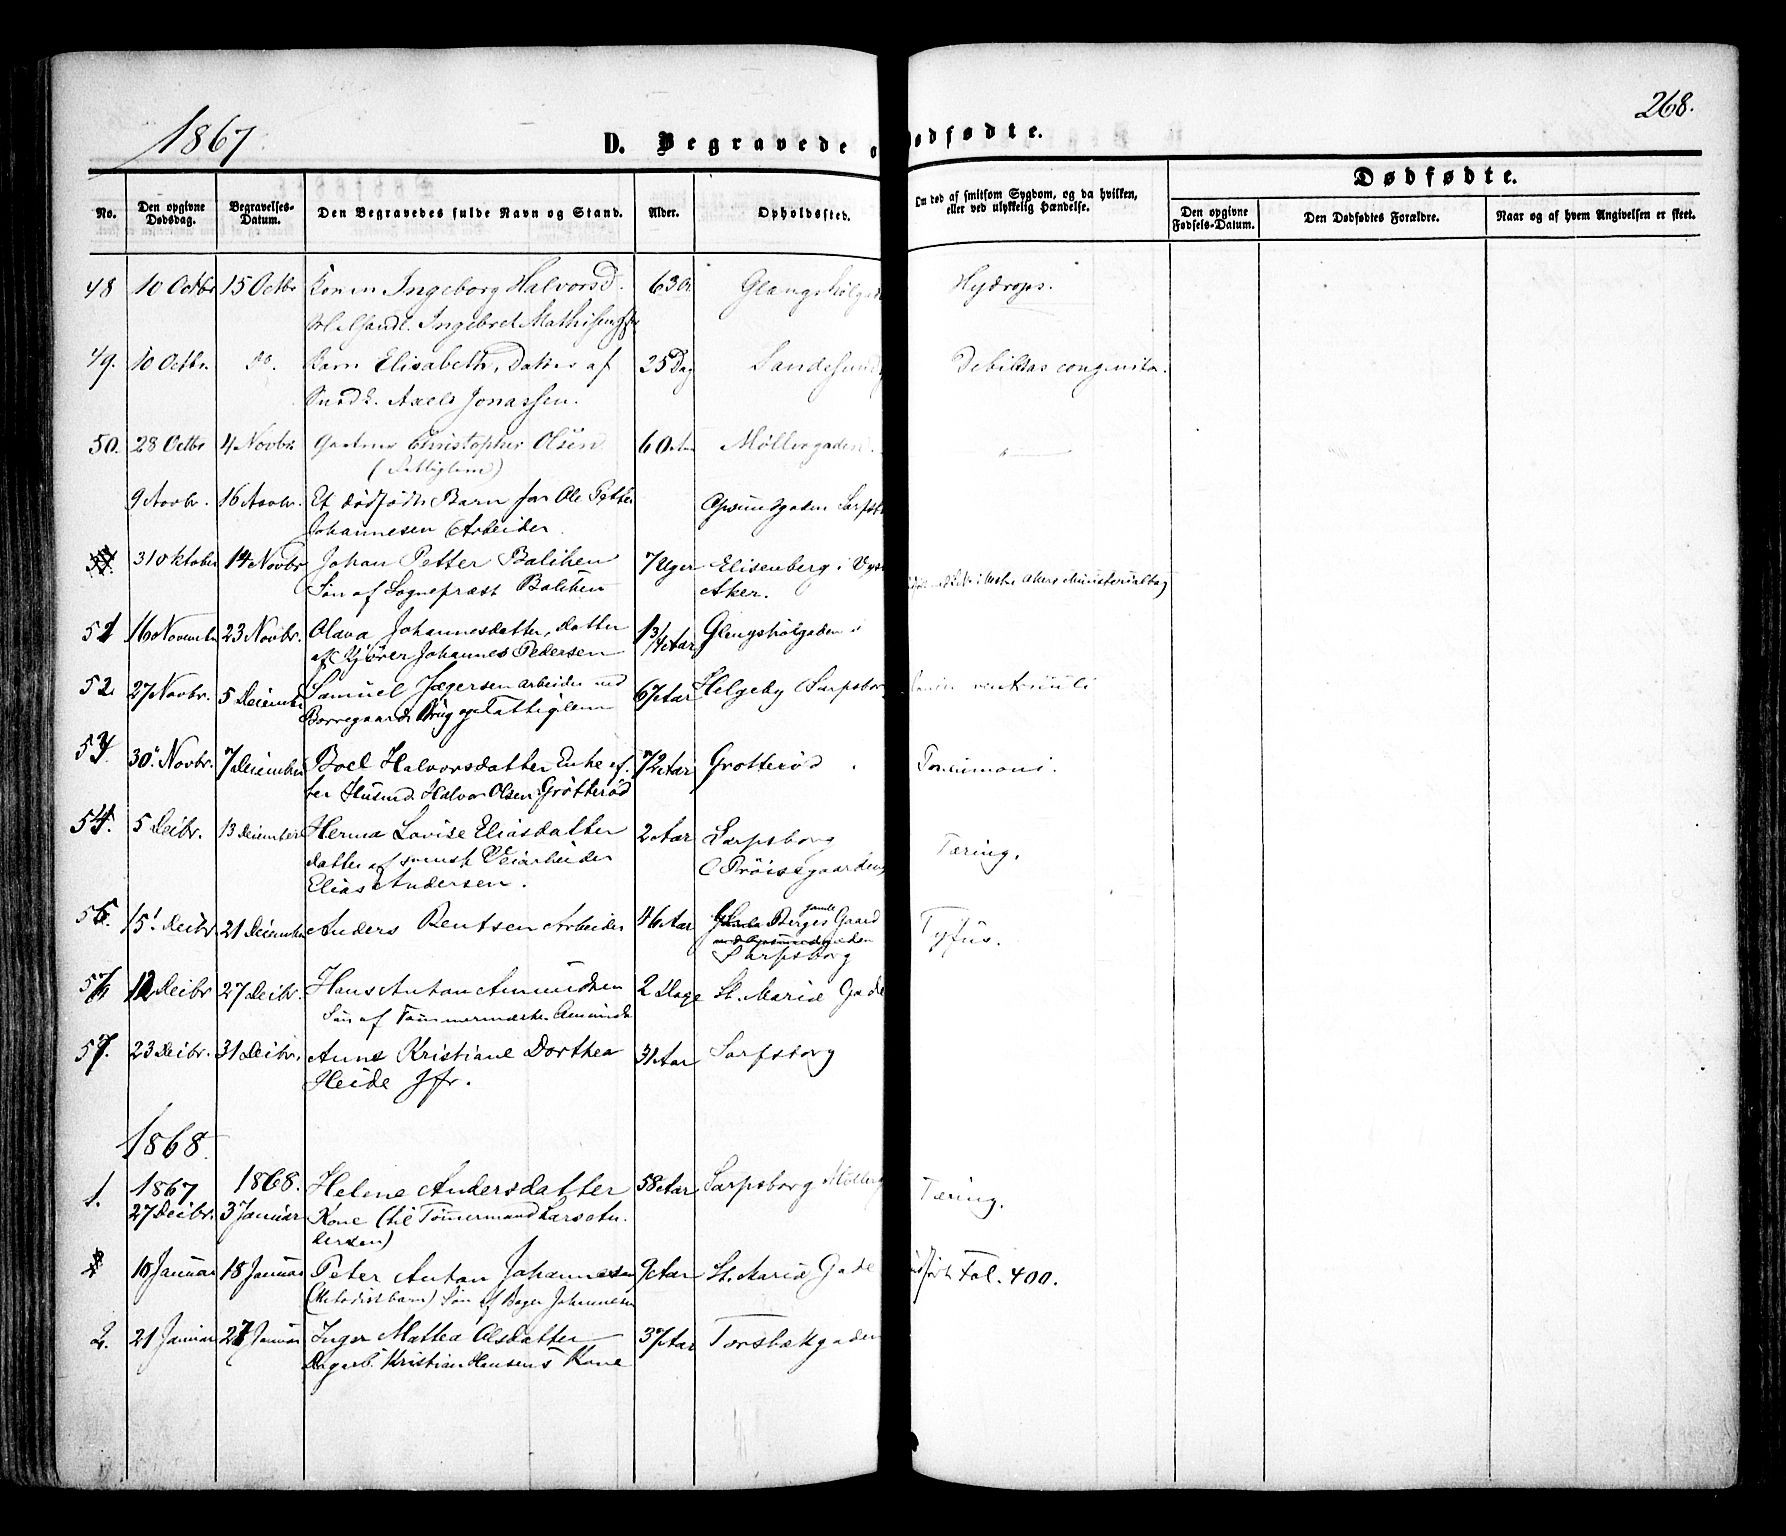 1867
268.
D. Begravede o
ødfødte.
No.
Den opgivne Dødsdag.
Begravelses-Datum.
Den Begravedes fulde Navn og Stand.
Alder.
Opholdssted.
Om død af smitsom Sygdom, og da hvilken, eller ved ulykkelig Hændelse.
Dødfødte.
Den opgivne Fødsels-Datum.
Den Dødfødtes Forældre.
Naar og af hvem Angivelsen er skeet.
48 10 Octbr 15 Octbr Konen Ingeborg Halvorsd. 63 Hydrops.
Ingebret Mathisens
49. 10 Octbr. do. Barn Elisabeth, Datter af 25 Dag Sandesund Debilitas congenita.
Axel Jonassen.
50. 28 Octbr 4 Novbr Christopher Olsen 60 Aar Møllergaden
9 Novbr. 16 Novbr. Et dødfødt Barn for Ole Petter
Johannesen Arbeider.
31 Oktober 14 Novbr Johan Petter Balchen 7 Uger Elisenberg i
Søn af Sognepræst Balchen Aker.
51 16 November 23 Novbr. Olava Johannesdatter, datter 1 3/4 Aar Glengshølgaden
af Kjører Johannes Pedersen
52. 27 Novbr. 5 Decembr Samuel Jægersen arbeider ved 67 Aar Helgeby Sarpsborg
Borregaards Brug og Fattiglem
53. 30 Novbr. 7 December Boel Halvorsdatter Enke ef- 72 Aar Grotterød
ter Husmd. Halvor Olsen Grøtterød
54. 5 Decbr. 13 December Herma Lovise Eliasdatter 2 Aar Sarpsborg Tæring.
datter af svensk Veiarbeider
Elias Andersen.
55. 15 Decbr 21 December Anders Bentsen Arbeider 46 Aar gamle Berges Gaard Tyfus.
Sarpsborg
56 12 Decbr 27 Decbr. Hans Anton Amundsen 2 Dage St. Mariæ Gade
Søn af Tømmermester Amunds
57. 23 Decbr. 31 Decbr. Anne Kristiane Dorthea 31 Aar Sarpsborg
Heide Jfr.
1868.
1. 1867 1868. Helene Andersdatter 58 Aar Sarpsborg Tæring.
27 Decbr. 3 Januar Kone (til Tømmermand Lars An-
dersen)
10 Januar 18 Januar Peter Anton Johannesen 9 Aar St. Mariæ Gade Fol. 400.
(Metodistbarn) Søn af Bager Johannesen
2. 21 Januar 27 Januar Inger Mattea Olsdatter 37 Aar Torsbækgaden
Dagarb. Kristian Hansens Kone